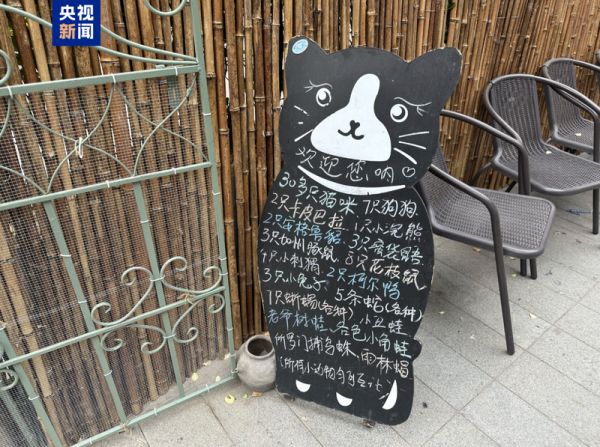 央视
新闻
欢迎您呐
30多只猫咪 7只狗狗
2只卡皮巴拉 1只小浣熊
2只安格鲁貂 3只蜜袋鼯
3只加州豚鼠 8只花枝鼠
1只小刺猬 2只柯尔鸭
3只小兔子 5条蛇(各种)
1只蜥蜴(各种) 小丑蛙
老爷树蛙 各色小角蛙
捕鸟蛛 雨林蝎
(所有小动物均可互动)